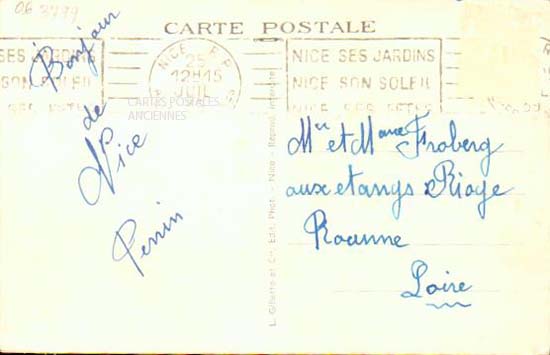 06 3799
CARTE POSTALE
SES JARDINS
SON SOLEIL
SES FETES
NICE R.P.
25
12H15
JUIL
NICE SES JARDINS
NICE SON SOLEIL
NICE SES FETES
CARTES POSTALES
ANCIENNES
Bonjour
de
Nice
Perrin
L. Gilletta et Cie Edit. Phot. - Nice - Reprod. interdite
Mr et Mme Froberg
aux etangs Riage
Roanne
Loire